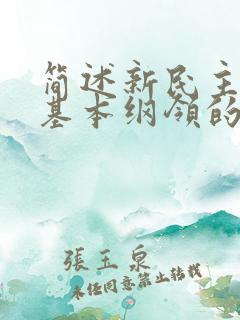 简述新民主
基本纲领的
張玉泉
未经同意禁止转载